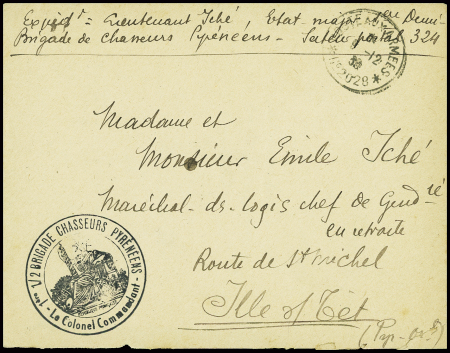 Expédr = Lieutenant Iché, Etat major 1ère Demi
Brigade de Chasseurs Pyrénéens - Secteur postal 324
ARMEES
12
39
* 28 *
Madame et
Monsieur Emile Iché
Maréchal-ds-logis chef de Gendrie
en retraite
Route de St Michel
Ille s/ Têt
(Pyr-Ortles)
1ère 1/2 BRIGADE CHASSEURS PYRENEENS
- Le Colonel Commandant -